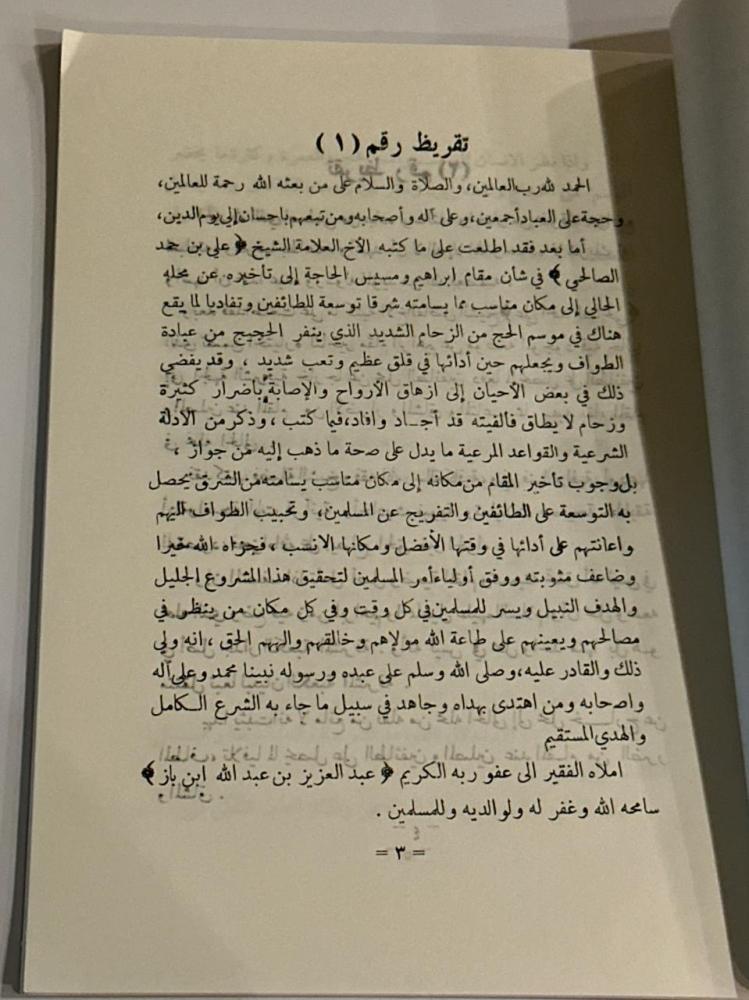 تقريظ رقم (١)
الحمد لله رب العالمين، والصلاة والسلام على من بعثه الله رحمة للعالمين،
وحجة على العباد أجمعين، وعلى آله وأصحابه ومن تبعهم باحسان إلى يوم الدين،
أما بعد فقد اطلعت على ما كتبه الأخ العلامة الشيخ ﴿ علي بن حمد
الصالحي ﴾ في شان مقام ابراهيم ومسيس الحاجة إلى تأخيره عن محله
الحالي إلى مكان مناسب مما يسامته شرقا توسعة للطائفين وتفاديا لما يقع
هناك في موسم الحج من الزحام الشديد الذي ينفر الحجيج من عبادة
الطواف ويجعلهم حين أدائها في قلق عظيم وتعب شديد ، وقد يفضي
ذلك في بعض الأحيان إلى ازهاق الأرواح والإصابة بأضرار كثيرة
وزحام لا يطاق فألفيته قد أجـاد وافاد،فيما كتب ، وذكر من الأدلة
الشرعية والقواعد المرعية ما يدل على صحة ما ذهب إليه من جواز ،
بل وجوب تأخير المقام من مكانه إلى مكان مناسب يسامته من الشرق يحصل
به التوسعة على الطائفين والتفريج عن المسلمين، وتحبيب الطواف اليهم
واعانتهم على أدائها في وقتها الأفضل ومكانها الانسب ، فجزاه الله خيرا
وضاعف مثوبته ووفق أولياء أمر المسلمين لتحقيق هذا المشروع الجليل
والهدف النبيل ويسر للمسلمين في كل وقت وفي كل مكان من ينظر في
مصالحهم ويعينهم على طاعة الله مولاهم وخالقهم والههم الحق ، انه ولي
ذلك والقادر عليه، وصلى الله وسلم على عبده ورسوله نبينا محمد وعلى آله
واصحابه ومن اهتدى بهداه وجاهد في سبيل ما جاء به الشرع الكامل
والهدي المستقيم
املاه الفقير الى عفو ربه الكريم ﴿ عبد العزيز بن عبد الله ابن باز ﴾
سامحه الله وغفر له ولوالديه وللمسلمين .
= ٣ =